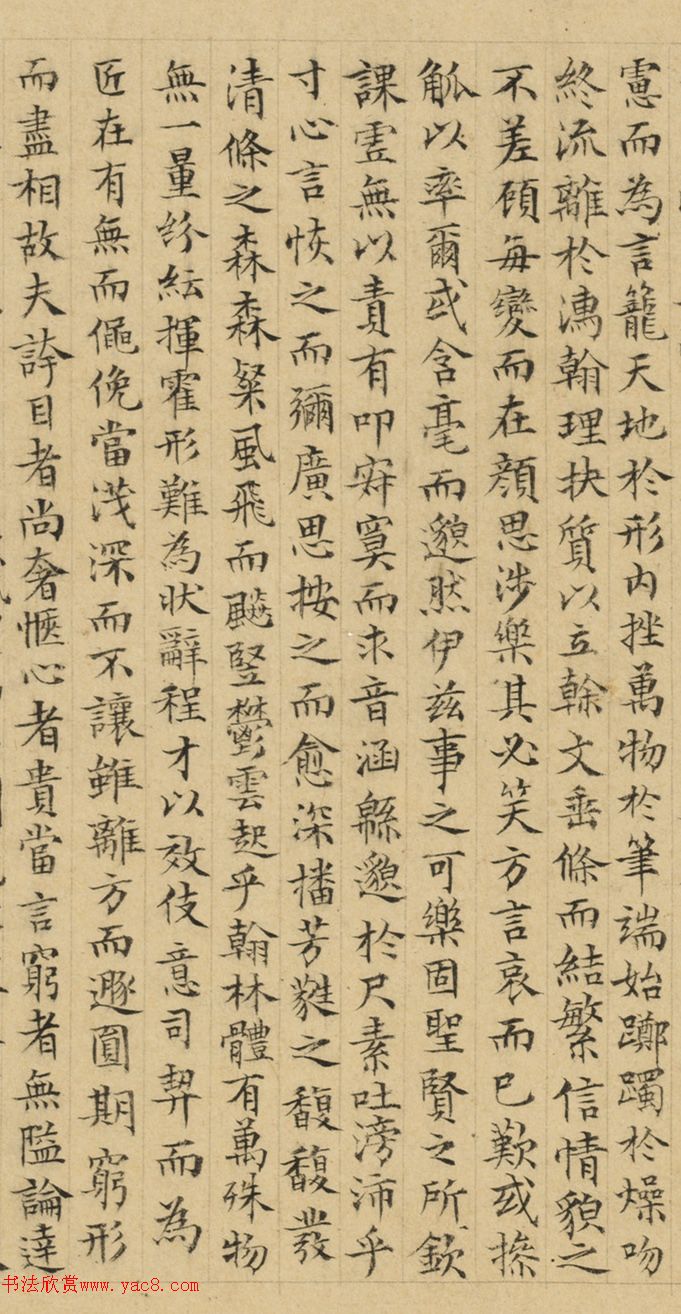 慮而為言籠天地於形內挫萬物於筆端始躑躅於燥吻
終流離於濡翰理抉質以立榦文垂條而結繁信情貌之
不差頋每變而在顏思涉樂其必笑方言哀而已歎或操
觚以率爾或含毫而邈然伊茲事之可樂固聖賢之所欽
課虛無以責有叩寂寞而求音涵緜邈於尺素吐滂沛乎
寸心言恢之而彌廣思按之而愈深播芳蕤之馥馥發
清條之森森粲風飛而飈豎鬱雲起乎翰林體有萬殊物
無一量紛紜揮霍形難為狀辭程才以效伎意司契而為
匠在有無而僶俛當淺深而不讓雖離方而遯圓期窮形
而盡相故夫誇目者尚奢愜心者貴當言窮者無隘論達
书法欣赏www.yac8.com